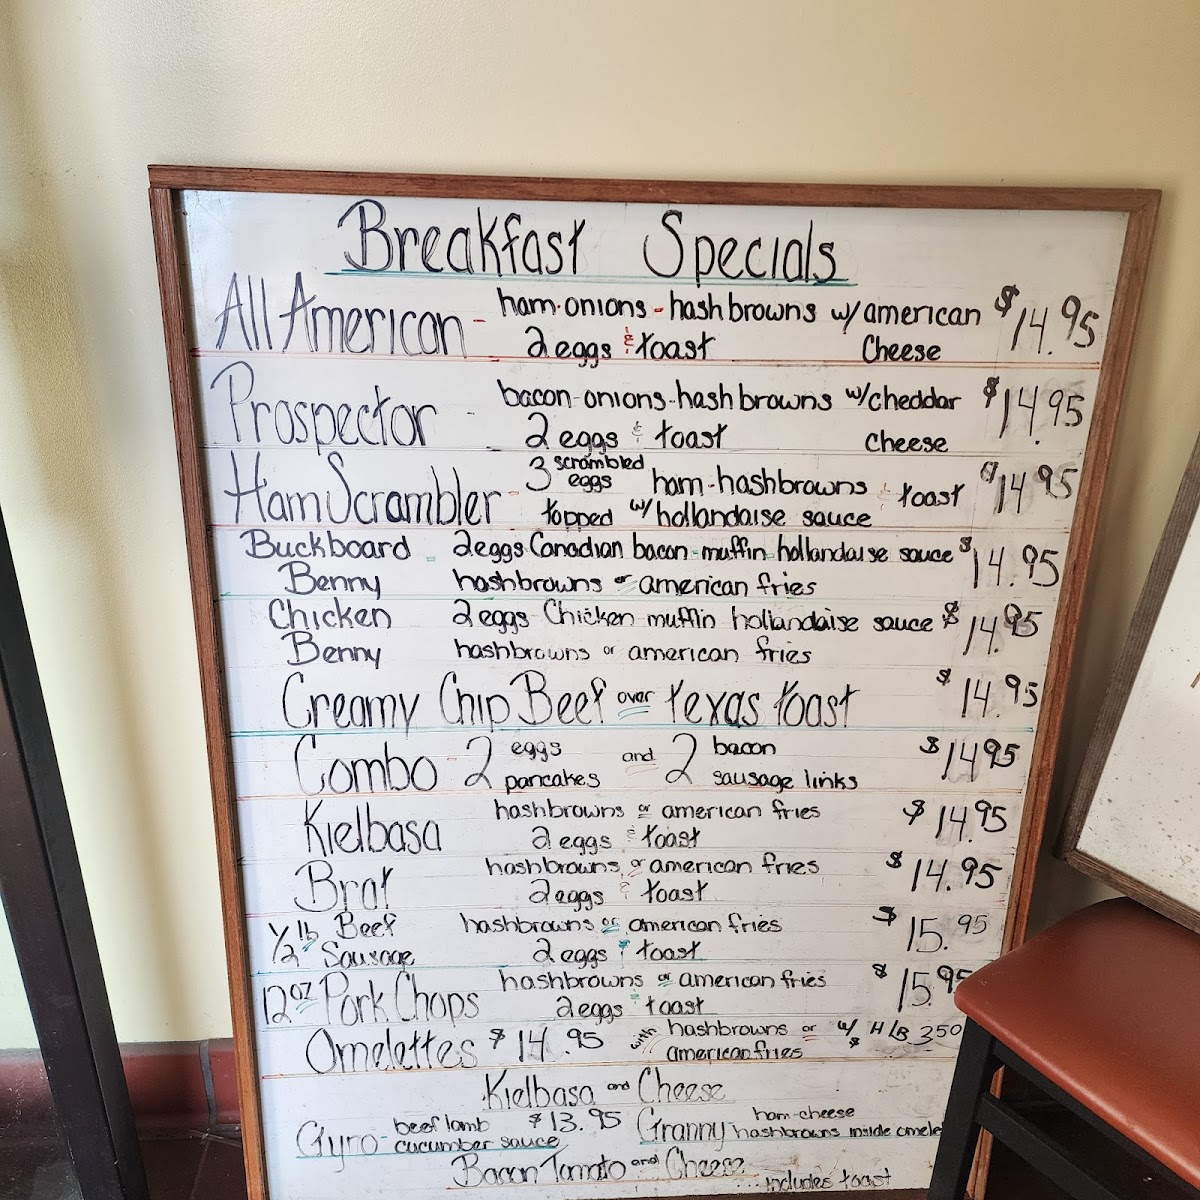 Breakfast Specials
All American - ham-onions-hashbrowns w/ american $14.95
2 eggs & toast Cheese
Prospector - bacon-onions-hashbrowns w/cheddar $14.95
2 eggs & toast cheese
Ham Scrambler - 3 scrambled eggs ham-hashbrowns & toast $14.95
topped w/ hollandaise sauce
Buckboard - 2 eggs Canadian bacon-muffin-hollandaise sauce $14.95
Benny hashbrowns or american fries
Chicken 2 eggs Chicken muffin hollandaise sauce $14.95
Benny hashbrowns or american fries
Creamy Chip Beef over texas toast $14.95
Combo 2 eggs and 2 bacon $14.95
pancakes sausage links
Kielbasa hashbrowns or american fries $14.95
2 eggs & toast
Brat hashbrowns or american fries $14.95
2 eggs & toast
1/2 lb Beef hashbrowns or american fries $15.95
Sausage 2 eggs & toast
12 oz Pork Chops hashbrowns or american fries $15.95
2 eggs & toast
Omelettes $14.95 with hashbrowns or w/ HLB $3.50
american fries
Kielbasa and Cheese
Gyro - beef lamb $13.95 Granny ham-cheese
cucumber sauce hashbrowns inside omele
Bacon Tomato and Cheese includes toast